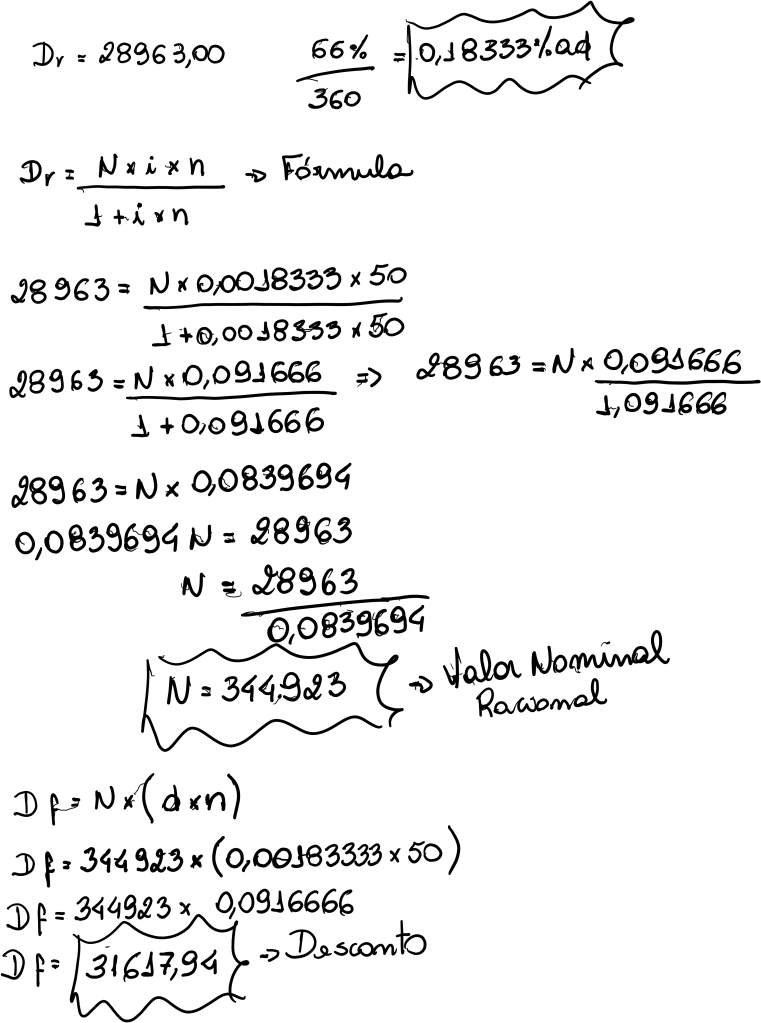 Dr = 28963,00 66% / 360 = 0,18333%ad
Dr = N × i × n / 1 + i × n → Fórmula
28963 = N × 0,0018333 × 50 / 1 + 0,0018333 × 50
28963 = N × 0,091666 / 1 + 0,091666 => 28963 = N × 0,091666 / 1,091666
28963 = N × 0,0839694
0,0839694 N = 28963
N = 28963 / 0,0839694
N = 344.923 → Valor Nominal Racional
Df = N × (d × n)
Df = 344923 × (0,00183333 × 50)
Df = 344923 × 0,0916666
Df = 31617,94 → Desconto